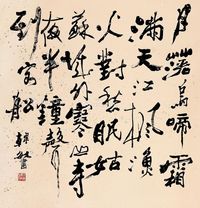 月落烏啼霜
滿天江楓漁
火對愁眠姑
蘇城外寒山寺
夜半鐘聲
到客船